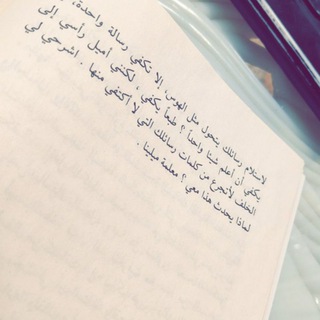 لاستلام رسائلك يتحول مثل الهوس، إلا تكفي رسالة واحدة،
يكفي أن أعلم شيئا واحداً ؟ طبعاً يكفي ، لكنني أميل رأسي إلى
الخلف لأتجرع من كلمات رسائلك التي لا أكتفي منها . اشرحي لي
لماذا يحدث هذا معي ؟ معلمة ميلينا .